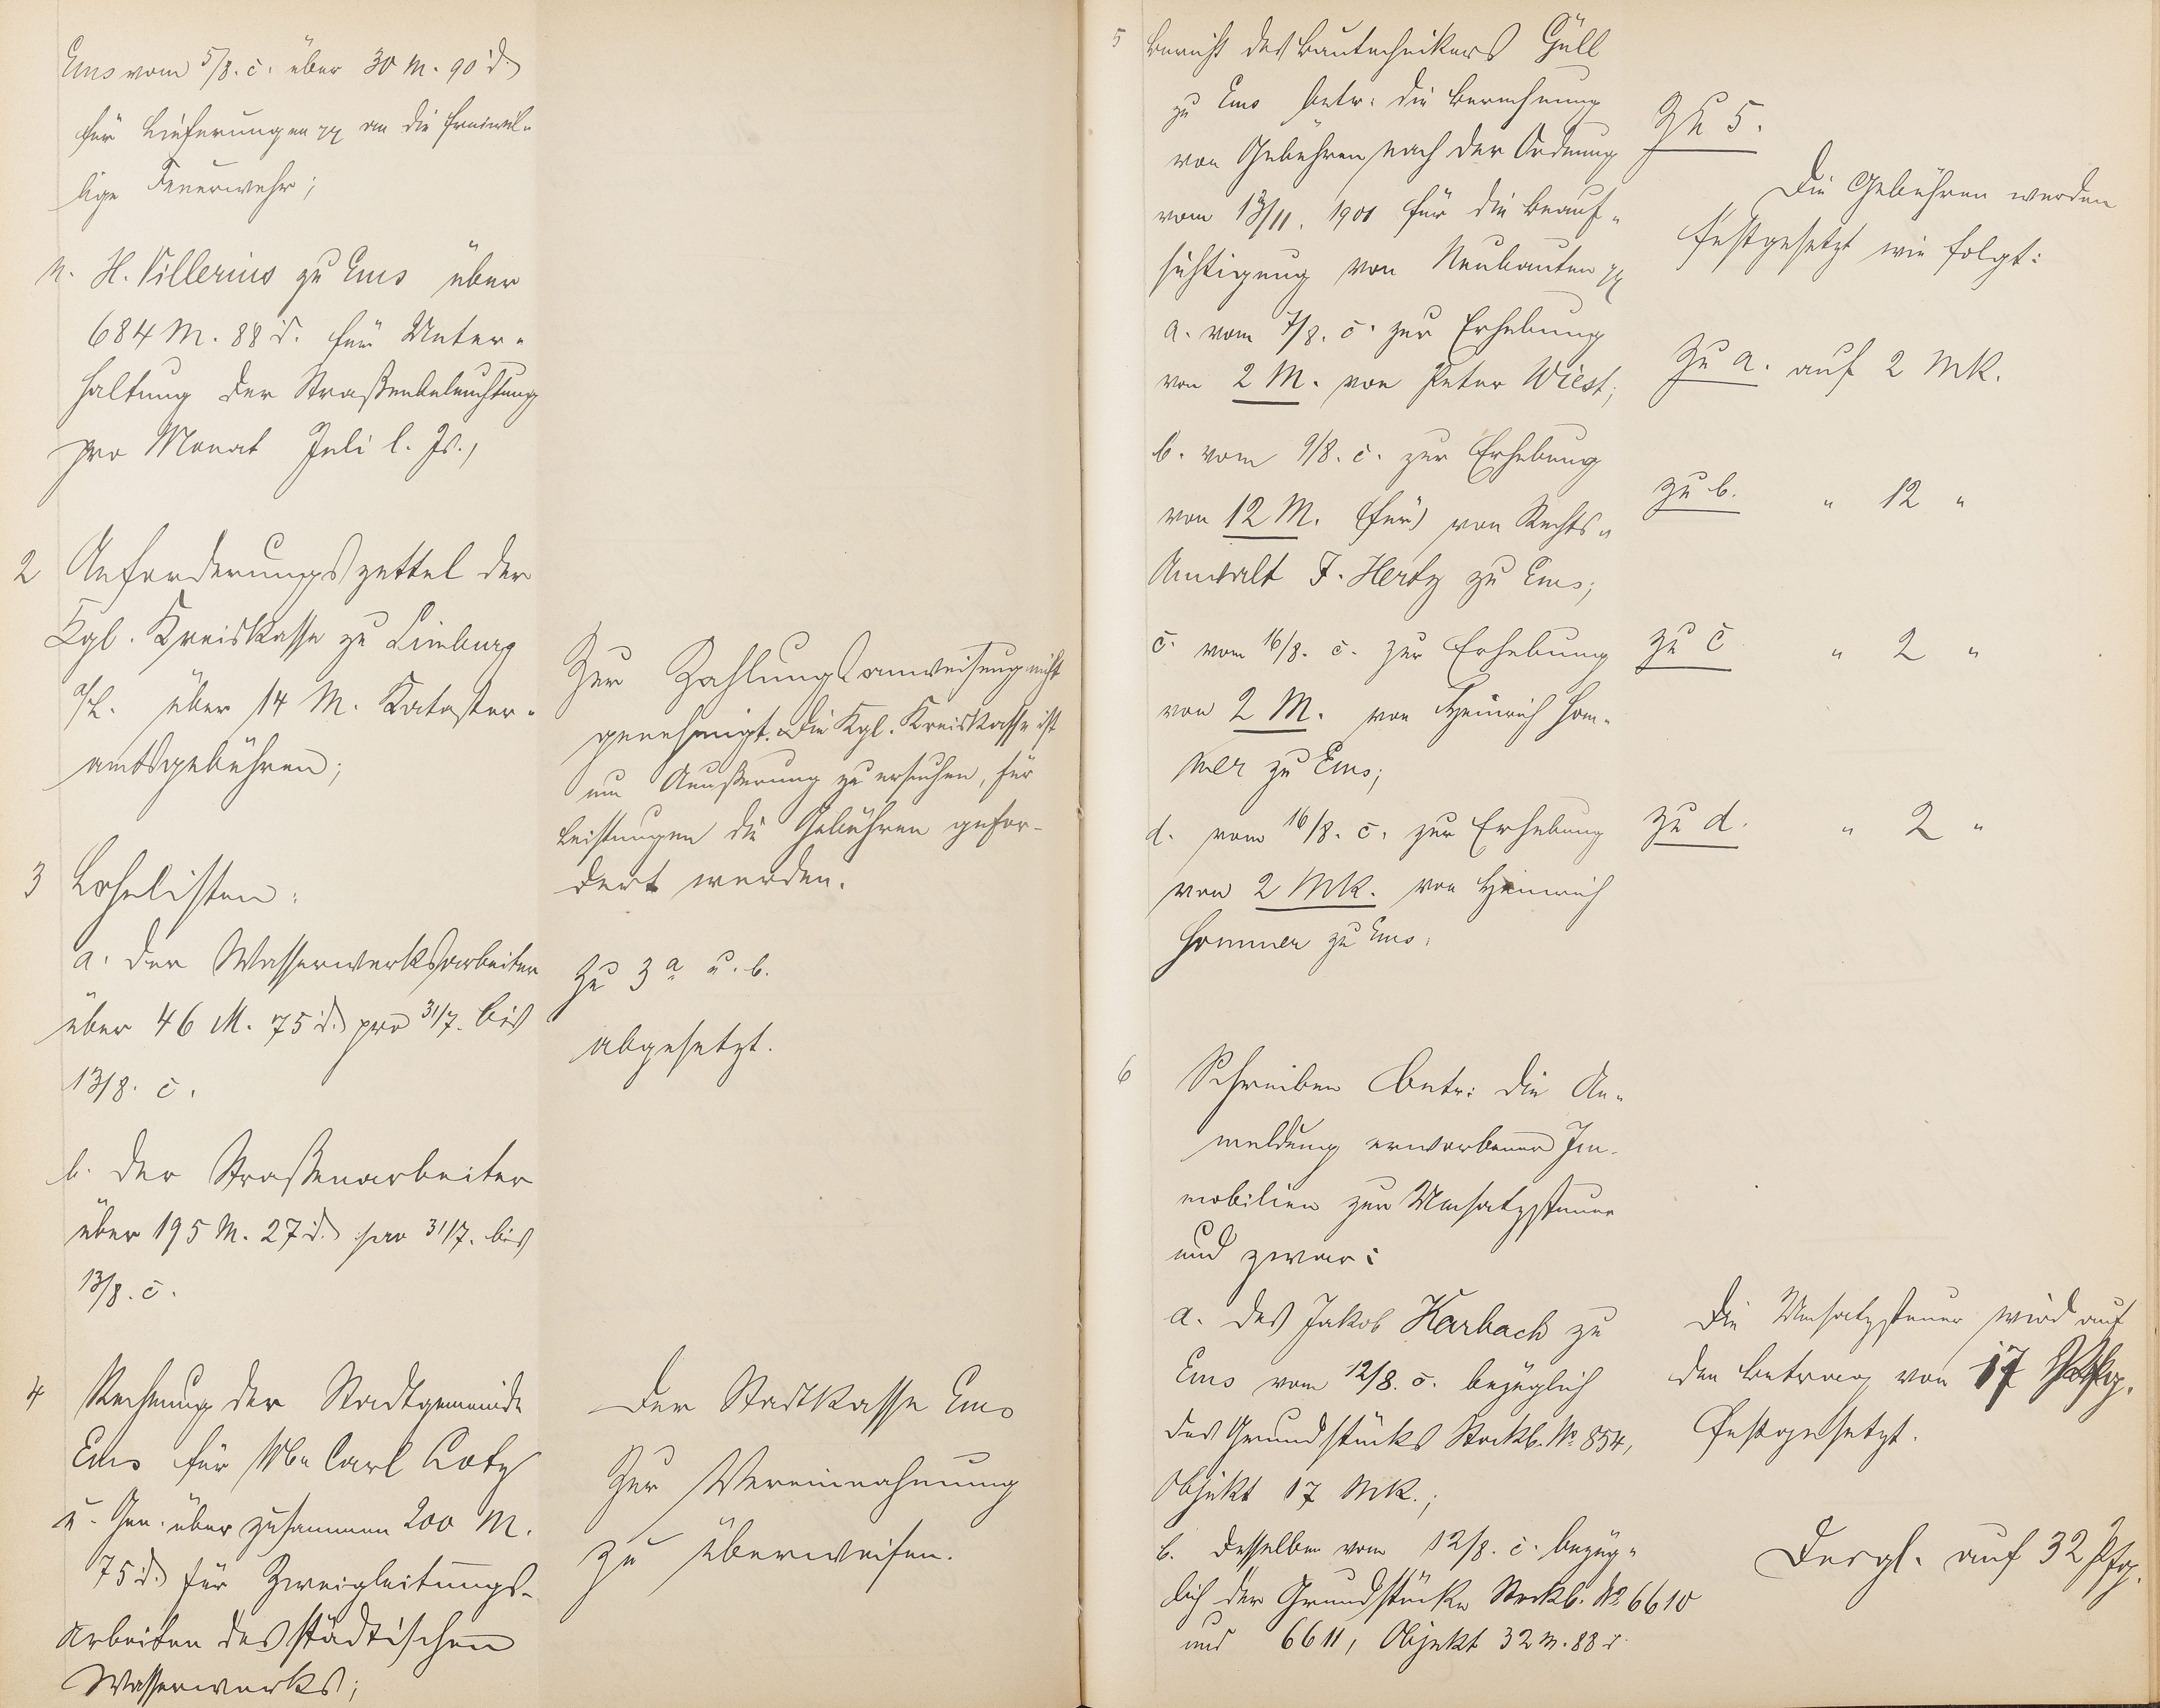 Ems vom 5/8. c. über 30 M. 90 d.
für Lieferungen pp an die freiwil-
lige Feuerwehr;
n. H. Villerius zu Ems über
684 M. 88 d. für Unter-
haltung der Straßenbeleuchtung
pro Monat Juli l. Js.,
2 Anforderungszettel der
Kgl. Kreiskasse zu Limburg
a/L. über 14 M. Kataster-
amtsgebühren;
Zur Zahlungsanweisung nicht
genehmigt. Die Kgl. Kreiskasse ist
um Aeußerung zu ersuchen, für
Leistungen die Gebühren gefor-
dert werden.
3 Lohnlisten:
a. der Wasserwerksarbeiter
über 46 M. 75 d. pro 31/7. bis
13/8. c.
b. der Straßenarbeiter
über 195 M. 27 d. pro 31/7. bis
13/8. c.
Zu 3 a u. b.
abgesetzt.
4 Rechnung der Stadtgemeinde
Ems für Carl Loty
u. Gen. über zusammen 200 M.
75 d. für Zweigleitungs-
arbeiten des städtischen
Wasserwerks;
Der Stadtkasse Ems
zur Vereinnahmung
zu überweisen.
5 Bericht des Bautechnikers Güll
zu Ems betr. die Berechnung
von Gebühren nach der Ordnung
vom 13/11. 1901 für die Beauf-
sichtigung von Neubauten pp
a. vom 7/8. c. zur Erhebung
von 2 M. von Peter Wiest;
b. vom 9/8. c. zur Erhebung
von 12 M. (für) von Rechts-
Anwalt F. Hertz zu Ems;
c. vom 16/8. c. zur Erhebung
von 2 M. von Heinrich Hom-
mer zu Ems;
d. vom 16/8. c. zur Erhebung
von 2 Mk. von Heinrich
Hommer zu Ems.
Zu 5.
Die Gebühren werden
festgesetzt wie folgt:
zu a. auf 2 Mk.
zu b. " 12 "
zu c " 2 "
zu d. " 2 "
6 Schreiben betr: die An-
meldung erworbener Im-
mobilien zur Umsatzsteuer
und zwar:
a. des Jakob Karbach zu
Ems vom 12/8. c. bezüglich
des Grundstücks Stockb. No. 854,
Objekt 17 Mk.;
b. desselben vom 12/8. c. bezüg-
lich der Grundstücke Stockb. No 6610
und 6611, Objekt 32 M. 88 d.
Die Umsatzsteuer wird auf
den Betrag von 17 Pfg.
festgesetzt.
Desgl. auf 32 Pfg.